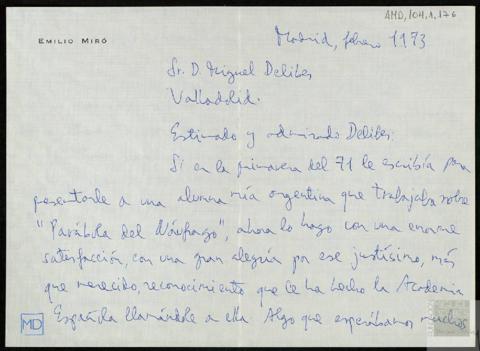 AMD,104,1,176
EMILIO MIRÓ
Madrid, febrero 1973
Sr. D. Miguel Delibes
Valladolid.
Estimado y admirado Delibes:
Si en la primavera del 71 le escribía para
presentarle a una alumna mía argentina que trabajaba sobre
"Parábola del Náufrago", ahora lo hago con una enorme
satisfacción, con una gran alegría por ese justísimo, más
que merecido, reconocimiento que le ha hecho la Academia
Española llamándole a ella. Algo que esperábamos muchos
MD